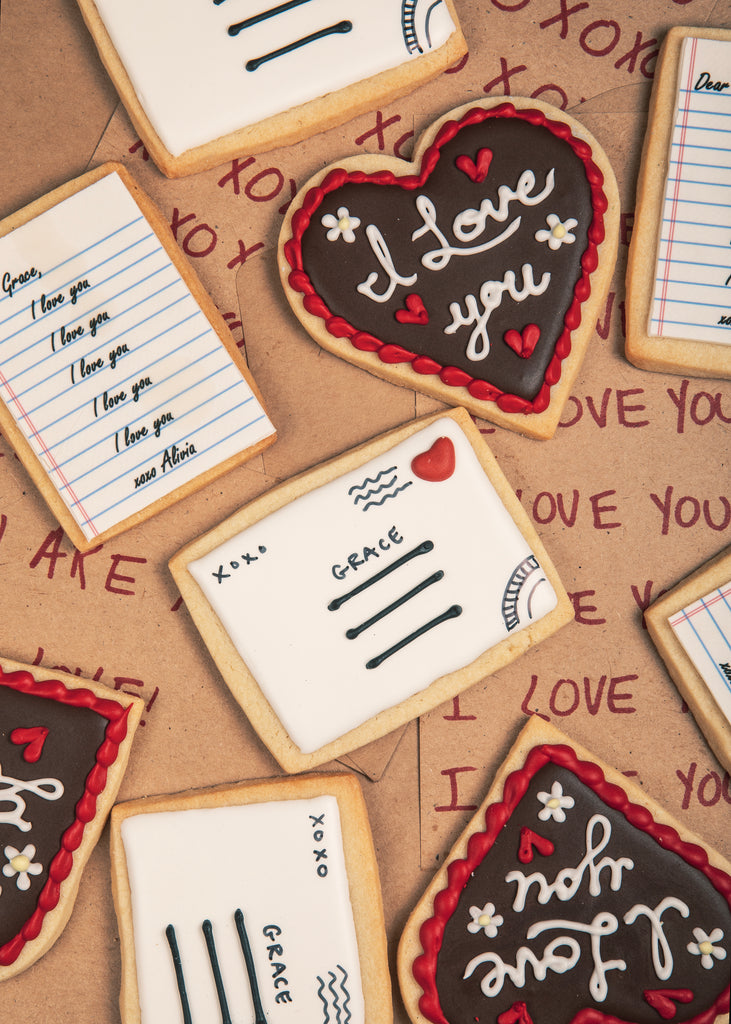 XOXO
XOXO
XOXO
XOX
Dear
Grace,
I love you
I love you
I love you
I love you
I love you
xoxo Alivia
I Love
you
LOVE YOU
LOVE YOU
I LOVE
I
YOU
AKE
LOVE!
XOXO
GRACE
XOXO
GRACE
I Love
you